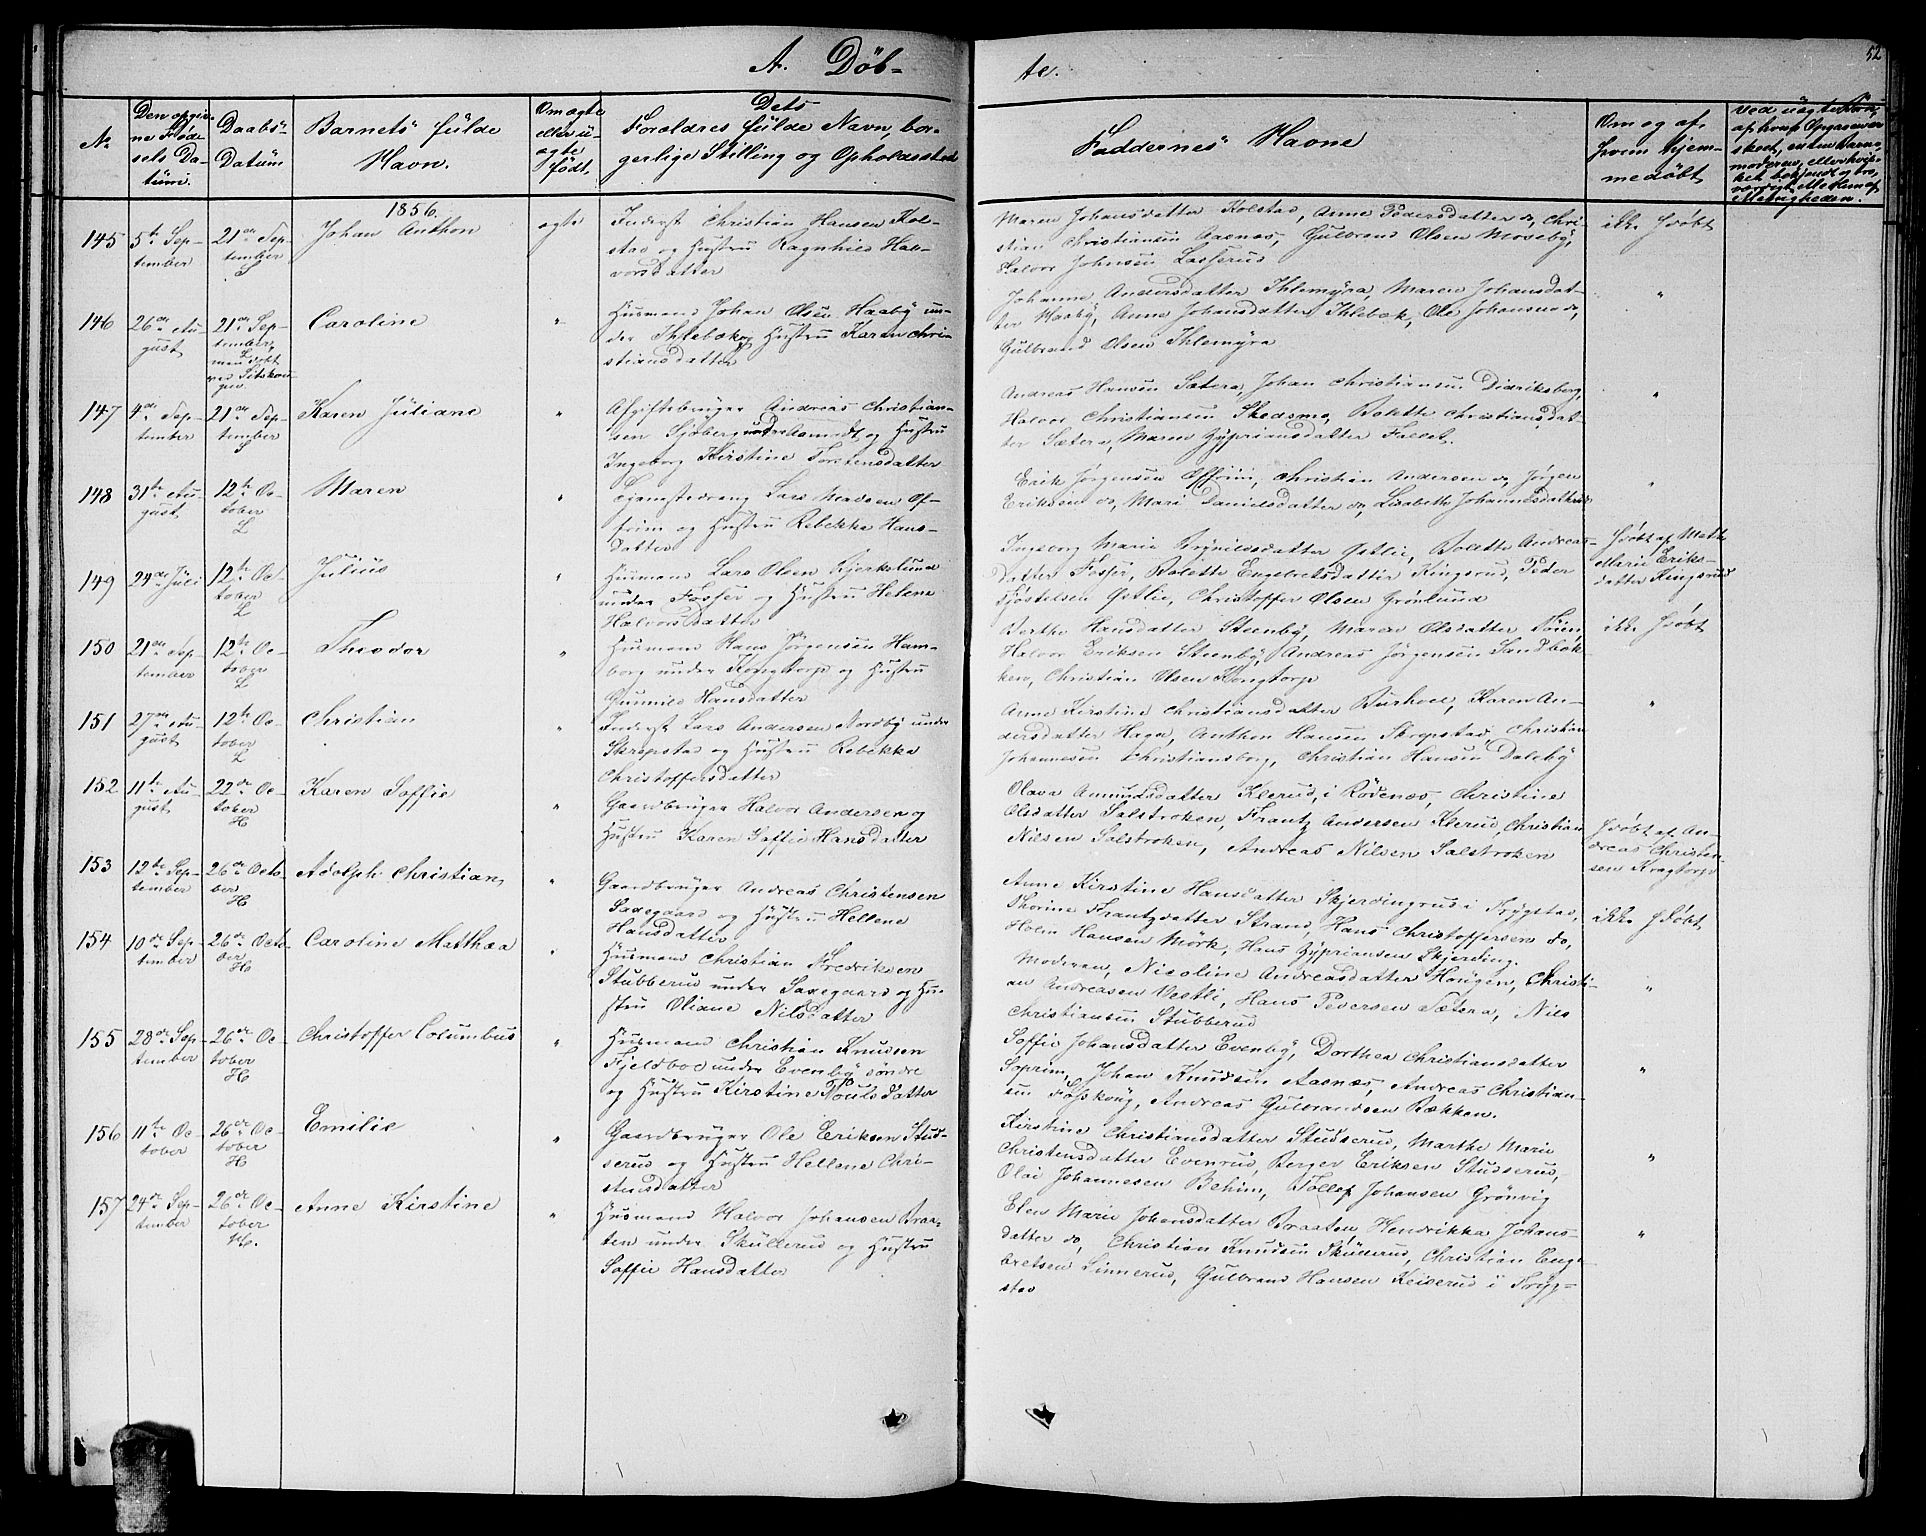 A. Döb- te.
52
No
Den opgiv-
ne Föd-
sels Da-
tum.
Daabs-
Datum
Barnets fulde
Navn.
Om ægte
eller u-
ægte
födt
Dets
Forældres fulde Navn, bor-
gerlige Stilling og Opholdssted
Faddernes Navne
Om og af
hvem hjem-
medöbt
1856.
145
5te Sep-
tember
21de Sep-
tember
Johan Anthon
ægte
Inderst Christian Hansen Kol-
stad og Hustru Ragnhild Hal-
vorsdatter
Maren Johansdatter Kolstad, Anne Pedersdatter do, Chri-
stian Christiansen Aasnæs, Gulbrand Olsen Moseby,
Halvor Johnsen Lasserud
ikke hdöbt
146
26de Au-
gust
21de Sep-
tember
Caroline
"
Husmand Johan Olsen Haaby un-
der Ihlebæk og Hustru Karen Chri-
stiansdatter
Johanne Andersdatter Ihlemyra, Maren Johansdat-
ter Haaby, Anne Johansdatter Ihlebæk, Ole Johansen do,
Gulbrand Olsen Ihlemyra
"
147
4de Sep-
tember
21de Sep-
tember
Karen Juliane
"
Afgiftsbruger Andreas Christian-
sen Sjöberg under
og Hustru
Ingeborg Kirstine Torstensdatter
Andreas Hansen Sætera, Johan Christiansen Didriksberg,
Halvor Christiansen Skedsmo, Bolette Christiansdat-
ter Sætera, Maren Zypriansdatter Fallet.
"
148
31te Au-
gust
12te Oc-
tober
L
Maren
"
Tjenestedreng Lars Madsen Of-
frim og Hustru Rebekka Hans-
datter
Erik Jörgensen Offrim, Christian Andersen do, Jörgen
Eriksen do, Mari Danielsdatter do, Lisabeth Johannesdatter do
"
149
24de Juli
12te Oc-
tober
L
Julius
"
Husmand Lars Olsen Kjerkelund
under Fosser og Hustru Helene
Halvorsdatter
Ingeborg Marie Brynildsdatter Östlie, Bolette Andreas-
datter Fosser, Bolette Engebretsdatter Kingsrud, Peder
Kjöstelsen Östlie, Christoffer Olsen Grönlund
hdöbt af Mathe
Marie Eriks-
datter Kingsrud
150
21de Sep-
tember
12te Oc-
tober
L
Theodor
"
Husmand Hans Jörgensen Ham-
borg under Kragtorp og Hustru
Gunnild Hansdatter
Berthe Hansdatter Steenby, Maren Olsdatter Toien,
Halvor Eriksen Steenby, Andreas Jörgensen Sandbak-
ken, Christian Olsen Kragtorp
ikke hdöbt
151
27de Au-
gust
12te Oc-
tober
L
Christian
"
Inderst Lars Andersen Nordby under
Skrepstad og Hustru Rebekka
Christoffersdatter
Anne Kirstine Christiansdatter Burhoel, Karen An-
dersdatter Haga, Anthon Hansen Skrepstad, Christian
Johannesen Christiansborg, Christian Hansen Daleby
"
152
11te Au-
gust
22de Oc-
tober
H
Karen Soffie
"
Gaardbruger Halvor Andersen og
Hustru Karen Soffie Hansdatter
Olava Amundsdatter Klerud i Rödenæs, Christine
Olsdatter Salstroken, Frantz Andersen Klerud, Christian
Nilsen Salstroken, Andreas Nilsen Salstroken
hdöbt af An-
dreas Christen-
sen Kragtorp
153
12te Sep-
tember
26de Octo-
ber
H
Adolph Christian
"
Gaardbruger Andreas Christensen
Saxegaard og Hustru Hellene
Hansdatter
Anne Kirstine Hansdatter Skjerdingrud i Trygstad,
Thorine Frantzdatter Strand, Hans Christoffersen do,
Holm Hansen Mörk, Hans Zypriansen Skjerding.
ikke hdöbt
154
10de Sep-
tember
26de Octo-
ber
H
Caroline Matthea
"
Husmand Christian Fredriksen
Stubberud under Saxegaard og Hu-
stru Oliane Nilsdatter
Moderen, Nicoline Andreasdatter Hougen, Christi-
an Andreasen Vestli, Hans Pedersen Sætera, Nils
Christiansen Stubberud
"
155
28de Sep-
tember
26de Oc-
tober
H
Christoffer Columbus
"
Husmand Christian Knudsen
Fjeldboe under Evenby söndre
og Hustru Kirstine Poulsdatter
Soffie Johansdatter Evenby, Dorthea Christiansdatter
Soprim, Johan Knudsen Aasnæs, Andreas Christian-
sen Fosskoug, Andreas Gulbrandsen Rækken.
"
156
11te Oc-
tober
26de Oc-
tober
H
Emilie
"
Gaardbruger Ole Eriksen Stud-
serud og Hustru Hellene Chri-
stensdatter
Kirstine Christiansdatter Studserud, Marthe Marie
Christensdatter Evenrud, Berger Eriksen Studserud,
Olai Johannesen Behim, Tollef Johansen Grönvig
"
157
24de Sep-
tember
26de Oc-
tober
H.
Anne Kirstine
"
Husmand Halvor Johansen Braa-
ten under Skullerud og Hustru
Soffie Hansdatter
Elen Marie Johansdatter Braaten, Hendrikka Johans-
datter do, Christian Knudsen Skullerud, Christian Enge-
bretsen Linnerud, Gulbrand Hansen Keiserud i Tryg-
stad
"